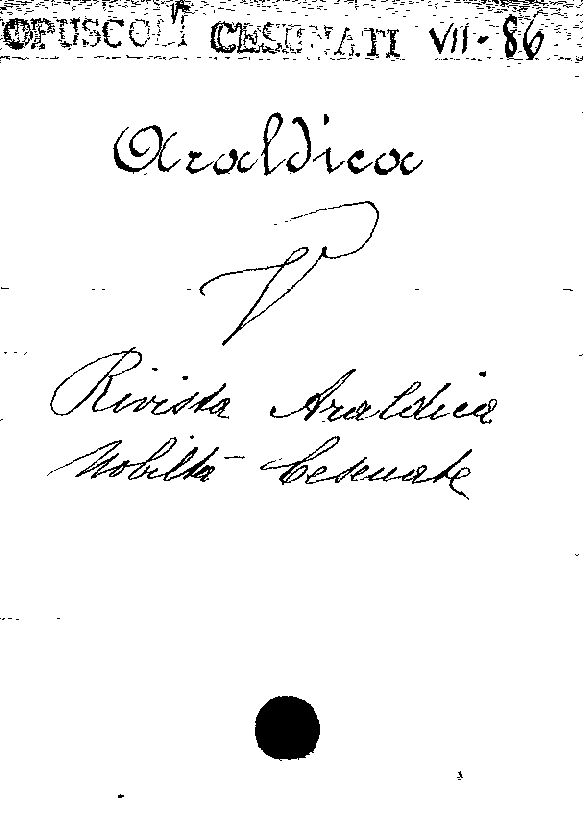 OPUSCOLI CESENATI VII-86
Araldica
V
Rivista Araldica
Nobiltà Cesenate